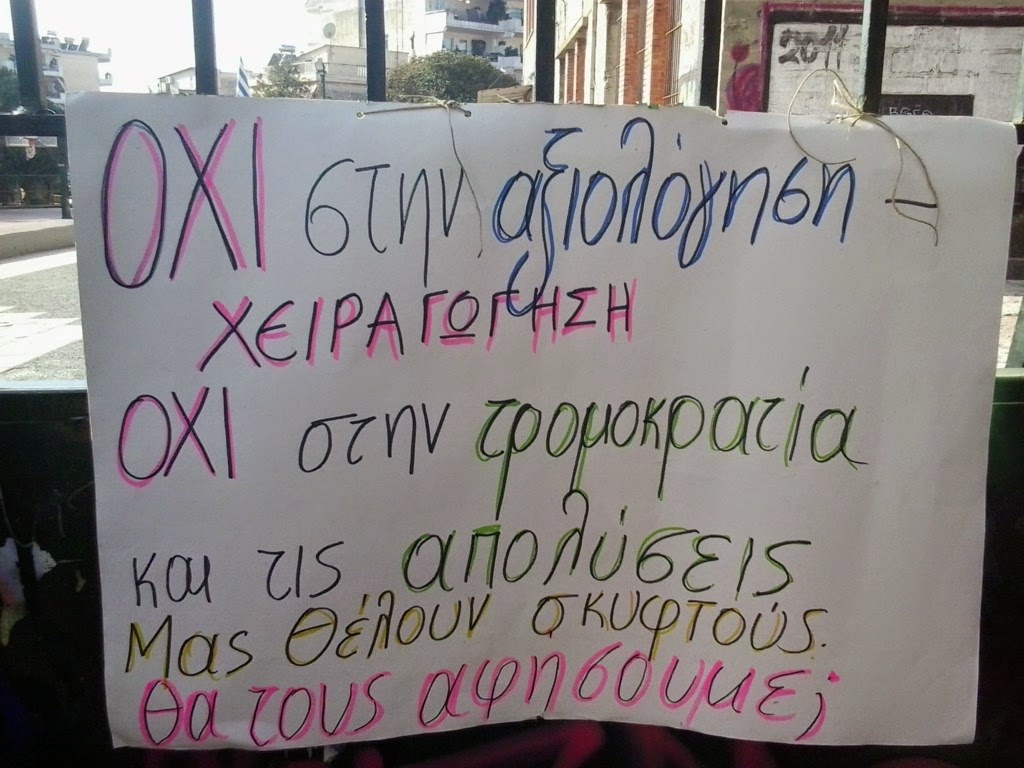 2011
ΟΧΙ στην αξιολόγηση -
ΧΕΙΡΑΓΩΓΗΣΗ
ΟΧΙ στην τρομοκρατία
και τις απολύσεις
Μας θέλουν σκυφτούς.
Θα τους αφησουμε;